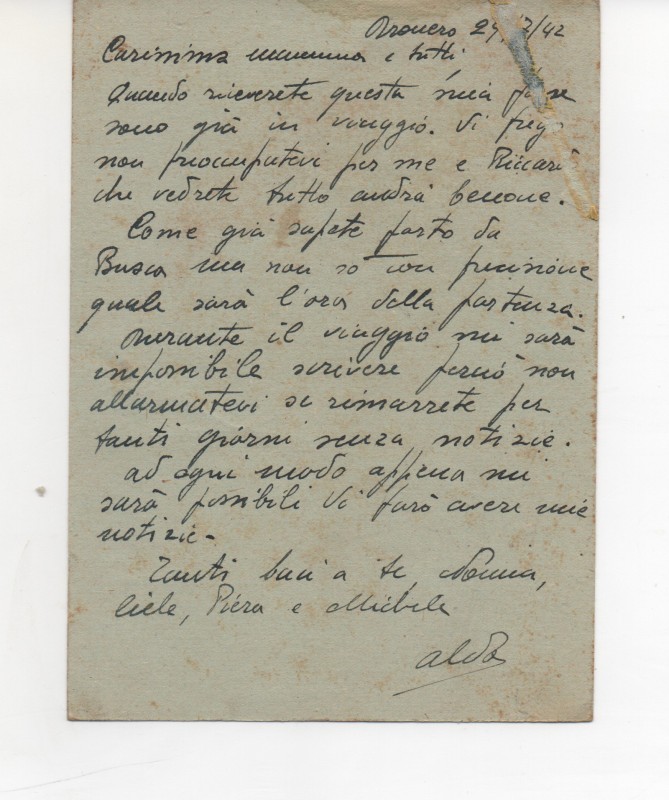 Dronero 29/7/42
Carissima mamma e tutti
Quando riceverete questa mia forse
sono già in viaggio. Vi preg
non preocupatevi per me e Riccar
che vedrete tutto andrà benone.
Come già sapete parto da
Busca ma non so con precisione
quale sarà l'ora della partenza.
Durante il viaggio mi sarà
impossibile scrivere perciò non
allarmatevi se rimarrete per
tanti giorni senza notizie.
Ad ogni modo appena mi
sarà possibili Vi farò avere mie
notizie -
Tanti baci a te, Nonna,
Ciele, Piera e Michele
Aldo